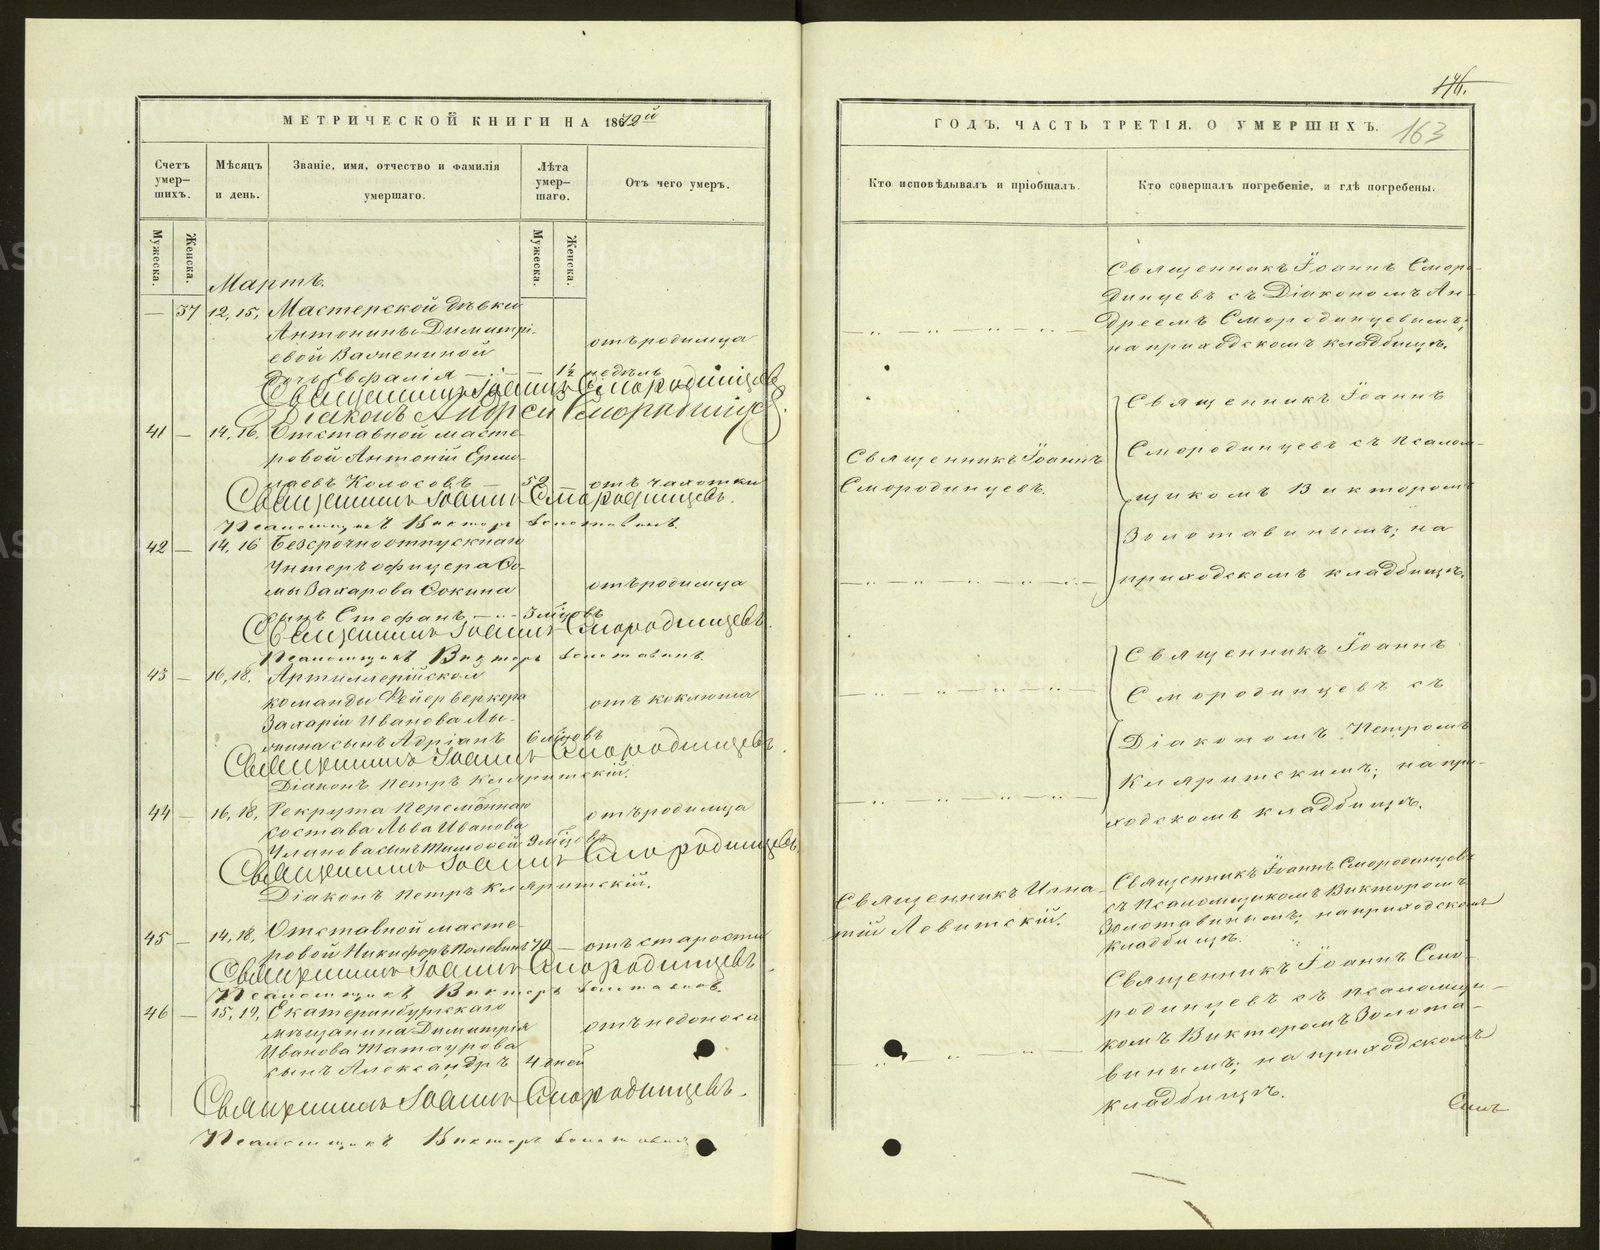 МЕТРИЧЕСКОЙ КНИГИ НА 1872й
Счетъ умер-шихъ.
Мѣсяцъ и день.
Званіе, имя, отчество и фамилія умершаго.
Лѣта умер-шаго.
Отъ чего умеръ.
Мужеска.
Женска.
Мужеска.
Женска.
Мартъ.
— 37 12, 15, Мастерской дѣвки
Антонины Димитрі-
евой
дочь Евфалія — 1½ недѣль
отъ родимца
Священникъ Іоаннъ Смородинцевъ
Діаконъ Андрей Смородинцевъ.
41 — 14, 16, Отставной масте-
ровой Антоній Ермо-
лаевъ Колосовъ — 52 отъ чахотки
Священникъ Іоаннъ Смородинцевъ.
Псаломщикъ Викторъ Золотавинъ
42 — 14, 16 Безсрочноотпускнаго
Унтеръ офицера Ѳо-
мы Захарова Сокина
сынъ Стефанъ — 3 мѣсяцовъ
отъ родимца
Священникъ Іоаннъ Смородинцевъ.
Псаломщикъ Викторъ Золотавинъ.
43 — 16, 18, Артиллерійской
команды Фейерверкера
Захарія Иванова Лы-
сынъ Адріанъ 6 мѣсяцовъ
отъ коклюша
Священникъ Іоаннъ Смородинцевъ.
Діаконъ Петръ Кляритскій.
44 — 16, 18, Рекрута перемѣннаго
состава Льва Иванова
Уланова сынъ Тимоѳей 9 мѣсяцовъ
отъ родимца
Священникъ Іоаннъ Смородинцевъ.
Діаконъ Петръ Кляритскій.
45 — 14, 18, Отставной масте-
ровой Никифоръ Полевинъ 70 — отъ старости
Священникъ Іоаннъ Смородинцевъ.
Псаломщикъ Викторъ Золотавинъ.
46 — 15, 19, Екатеринбургскаго
мѣщанина Димитрія
Иванова Татаурова
сынъ Александръ 4 дней
отъ недоноса
Священникъ Іоаннъ Смородинцевъ.
Псаломщикъ Викторъ Золотавинъ
ГОДЪ, ЧАСТЬ ТРЕТІЯ, О УМЕРШИХЪ.
163
Кто исповѣдывалъ и пріобщалъ.
Кто совершалъ погребеніе, и гдѣ погребены.
Священникъ Іоаннъ Сморо-
динцевъ съ Діакономъ Ан-
дреемъ Смородинцевымъ;
на приходскомъ кладбищѣ.
Священникъ Іоаннъ
Смородинцевъ.
Священникъ Іоаннъ
Смородинцевъ съ псалом-
щикомъ Викторомъ
Золотавинымъ; на
приходскомъ кладбищѣ.
Священникъ Іоаннъ
Смородинцевъ съ
Діакономъ Петромъ
Кляритскимъ; на при-
ходскомъ кладбищѣ.
Священникъ Игна-
тій Ловитскій.
Священникъ Іоаннъ Смородинцевъ
съ Псаломщикомъ Викторомъ
Золотавинымъ; на приходскомъ
кладбищѣ.
Священникъ Іоаннъ Смо-
родинцевъ съ псаломщи-
комъ Викторомъ Золота-
винымъ; на приходскомъ
кладбищѣ.